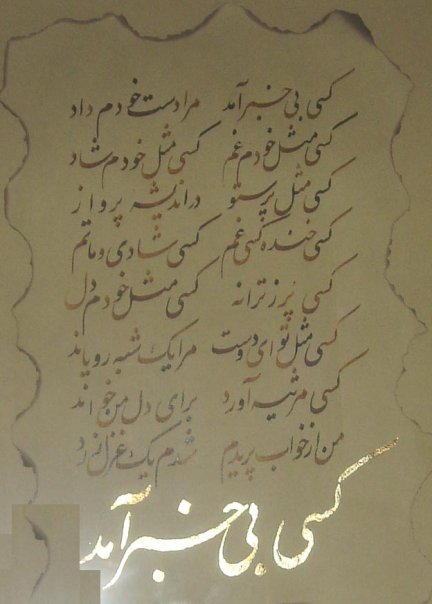 کسی بی خبر آمد مرا دست خودم داد
کسی مثل خودم غم کسی مثل خودم شاد
کسی مثل پرستو در اندیشه پرواز
کسی خنده کسی غم کسی شادی و ماتم
کسی پر ز ترانه کسی مثل خودم دل
کسی مثل تو ای دوست مرا یک شبه رویاند
کسی مرثیه آورد برای دل من خواند
من از خواب پریدم شدم یک غزل زرد
کسی بی خبر آمد